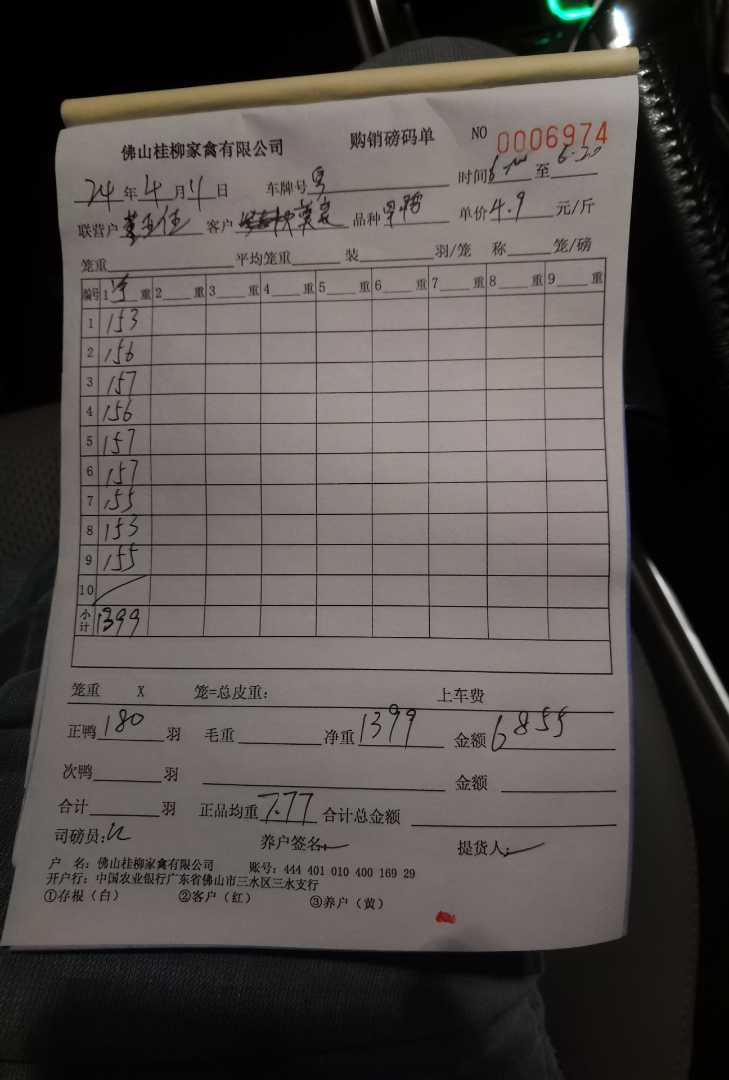 佛山桂柳家禽有限公司 购销磅码单 NO 0006974
24年4月4日 车牌号 时间6 至6-20
联营户 客户 品种 单价4.9元/斤
笼重 平均笼重 装 羽/笼 称 笼/磅
编号 1净重 2 重 3 重 4 重 5 重 6 重 7 重 8 重 9 重
1 153
2 156
3 157
4 156
5 157
6 157
7 155
8 153
9 155
10
小计 1399
笼重 X 笼=总皮重: 上车费
正鸭180羽 毛重 净重1399 金额6855
次鸭 羽 金额
合计 羽 正品均重7.77 合计总金额
司磅员: 养户签名 提货人:
户 名: 佛山桂柳家禽有限公司 账号: 444 401 010 400 169 29
开户行: 中国农业银行广东省佛山市三水区三水支行
①存根(白) ②客户(红) ③养户(黄)